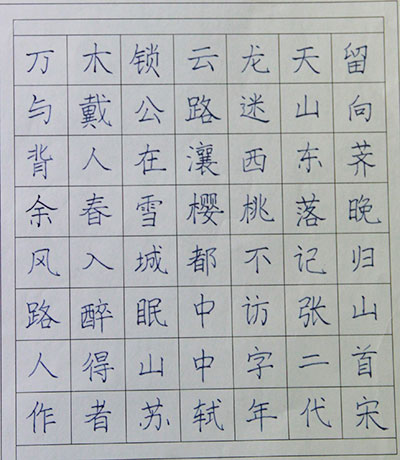 万木锁云龙天留
与戴公路迷山向
背人在瀼西东荞
余春雪樱桃落晚
风入城都不记归
路醉眠中访张山
人得山中字二首
作者苏轼年代宋